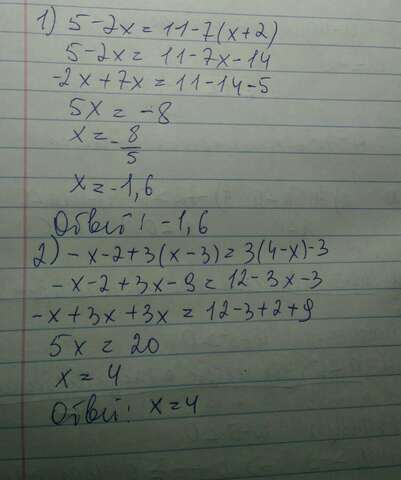 1) 5-2x=11-7(x+2)
5-2x=11-7x-14
-2x+7x=11-14-5
5x=-8
x=-8/5
x=-1,6
Ответ: -1,6
2) -x-2+3(x-3)=3(4-x)-3
-x-2+3x-9=12-3x-3
-x+3x+3x=12-3+2+9
5x=20
x=4
Ответ: x=4